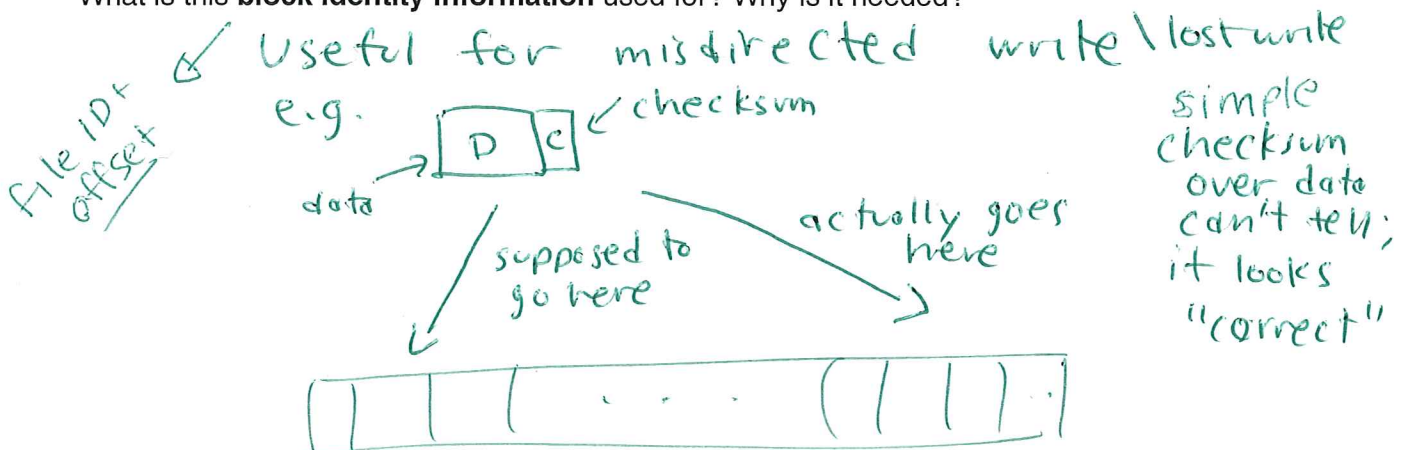 What is this block identity information used for? Why is it needed?
Useful for misdirected write \ lost write
File ID +
offset
e.g.
D
C
checksum
data
supposed to
go here
actually goes
here
simple
checksum
over data
can't tell;
it looks
"correct"
. . .